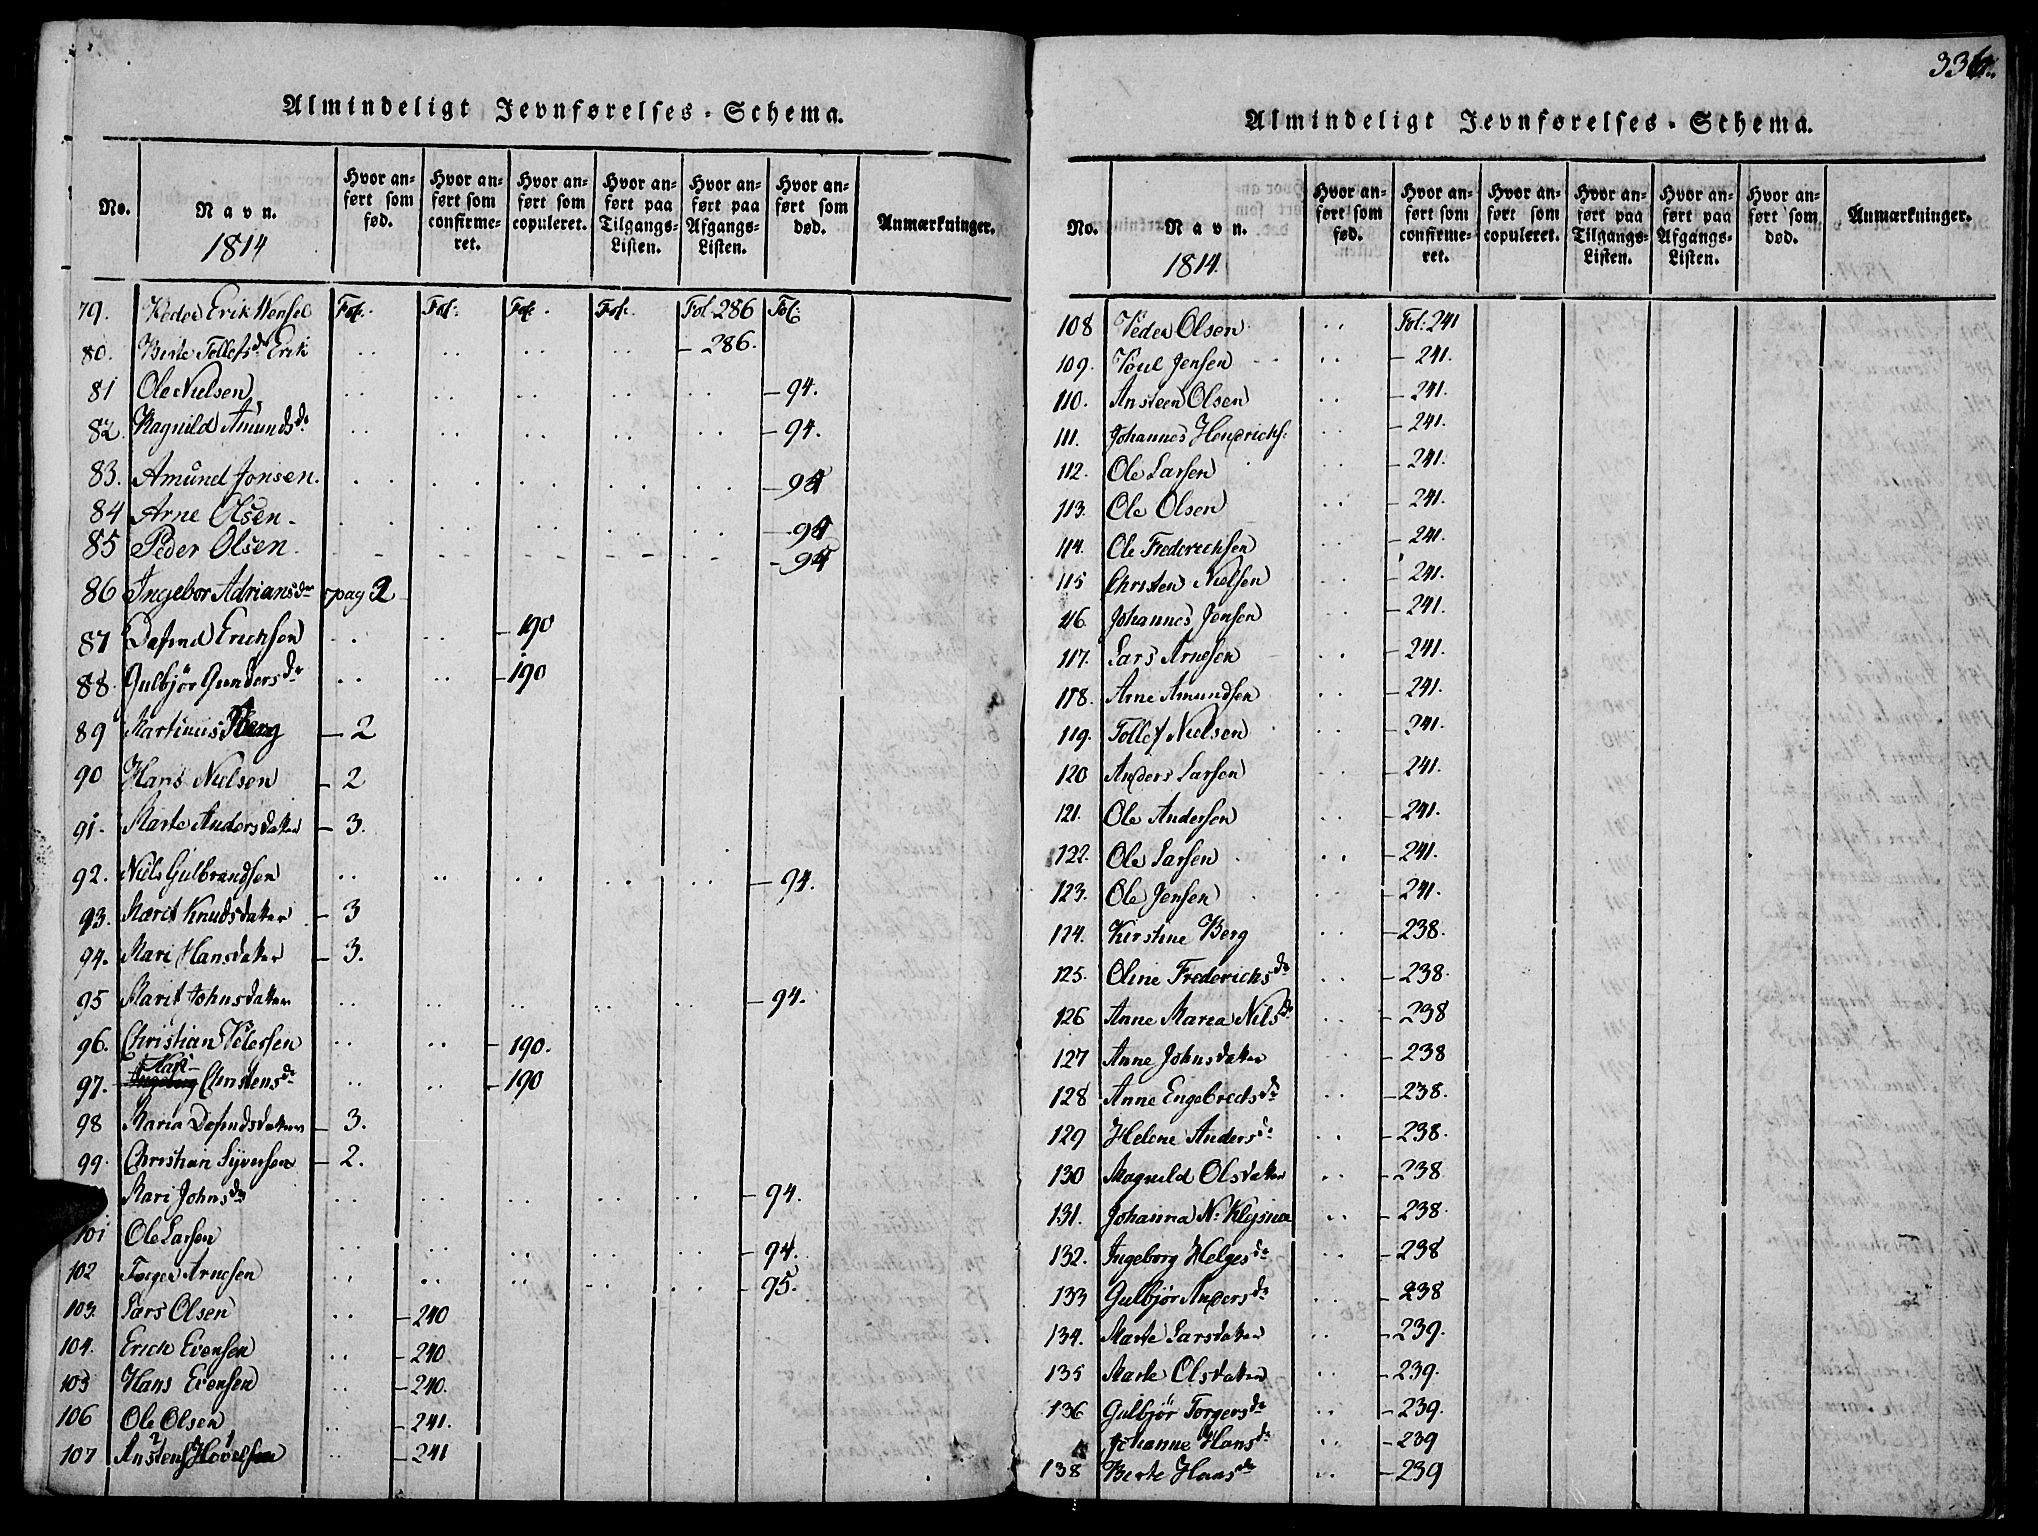 Almindeligt Jevnførelses-Schema.
No. Navn. 1814 Hvor anført som fød. Hvor anført som confirmeret. Hvor anført som copuleret. Hvor anført paa Tilgangs-Listen. Hvor anført paa Afgangs-Listen. Hvor anført som død. Anmærkninger.
79. Peder Erik Wensel Fol. Fol. Fol. Fol. Fol. 286 Fol.
80. Berte Tollefsdr Erik .. .. .. .. - 286.
81 Ole Nielsen .. .. .. .. .. - 94.
82. Ragnild Amundsdr .. .. .. .. .. - 94.
83. Amund Jonsen. .. .. .. .. .. - 94
84 Arne Olsen - .. .. .. .. .. - 94
85 Peder Olsen. - - - - - - 94
86 Ingebor Adriansdr pag 2
87 Defind Erichsen .. .. - 190
88. Gulbjør Gundersdr .. .. - 190
89 Martinus Berg - 2
90 Hans Nielsen - 2
91. Marte Andersdatter - 3.
92. Niels Gulbrandsen .. .. .. .. .. - 94.
93. Marit Knudsdatter - 3
94. Mari Hansdatter - 3.
95 Marit Johnsdatter .. .. .. .. .. - 94.
96. Christian Petersen .. .. - 190.
97. Kari Christensdr .. .. - 190
98 Maria Defindsdatter - 3.
99. Christian Syversen - 2.
Mari Johnsdr .. .. .. .. .. - 94.
101 Ole Larsen .. .. .. .. .. - 94.
102 Torger Arnesen .. .. .. .. .. - 95.
103. Lars Olsen .. - 240
104. Erich Evensen .. - 240
105 Hans Evensen .. - 240.
106 Ole Olsen .. - 241.
107 Anstens Hovelsen .. - 241
336.
Almindeligt Jevnførelses-Schema.
No. Navn. 1814. Hvor anført som fød. Hvor anført som confirmeret. Hvor anført som copuleret. Hvor anført paa Tilgangs-Listen. Hvor anført paa Afgangs-Listen. Hvor anført som død. Anmærkninger.
108 Peder Olsen .. Fol: 241
109. Poul Jensen .. - 241.
110. Ansteen Olsen .. - 241.
111. Johannes Hendrichs: .. - 241.
112. Ole Larsen .. - 241.
113. Ole Olsen .. - 241.
114. Ole Frederechsen .. - 241.
115 Christen Nielsen .. - 241.
116. Johannes Jensen .. - 241.
117. Lars Arnesen .. - 241.
118. Arne Amundsen .. - 241.
119. Tollef Nielsen .. - 241.
120 Anders Larsen .. - 241.
121. Ole Andersen .. - 241.
122. Ole Larsen .. - 241.
123. Ole Jensen .. - 241.
124. Kirstine Berg .. - 238.
125. Oline Frederichsdr .. - 238.
126 Anne Maria Nilsdr .. - 238
127 Anne Johnsdatter .. - 238
128 Anne Engebretsdr .. - 238.
129 Helene Andersdr .. - 238.
130 Magnild Olsdatter .. - 238
131. Johanna N: Klysna .. - 238.
132. Ingeborg Helgesdr .. - 238
133 Gulbjør Andersdr .. - 238
134. Marte Larsdatter .. - 239.
135 Marte Olsdatter .. - 239.
136 Gulbjør Torgersdr .. - 239.
Johanne Hansdr .. - 239
138 Berte Hansdr .. - 239